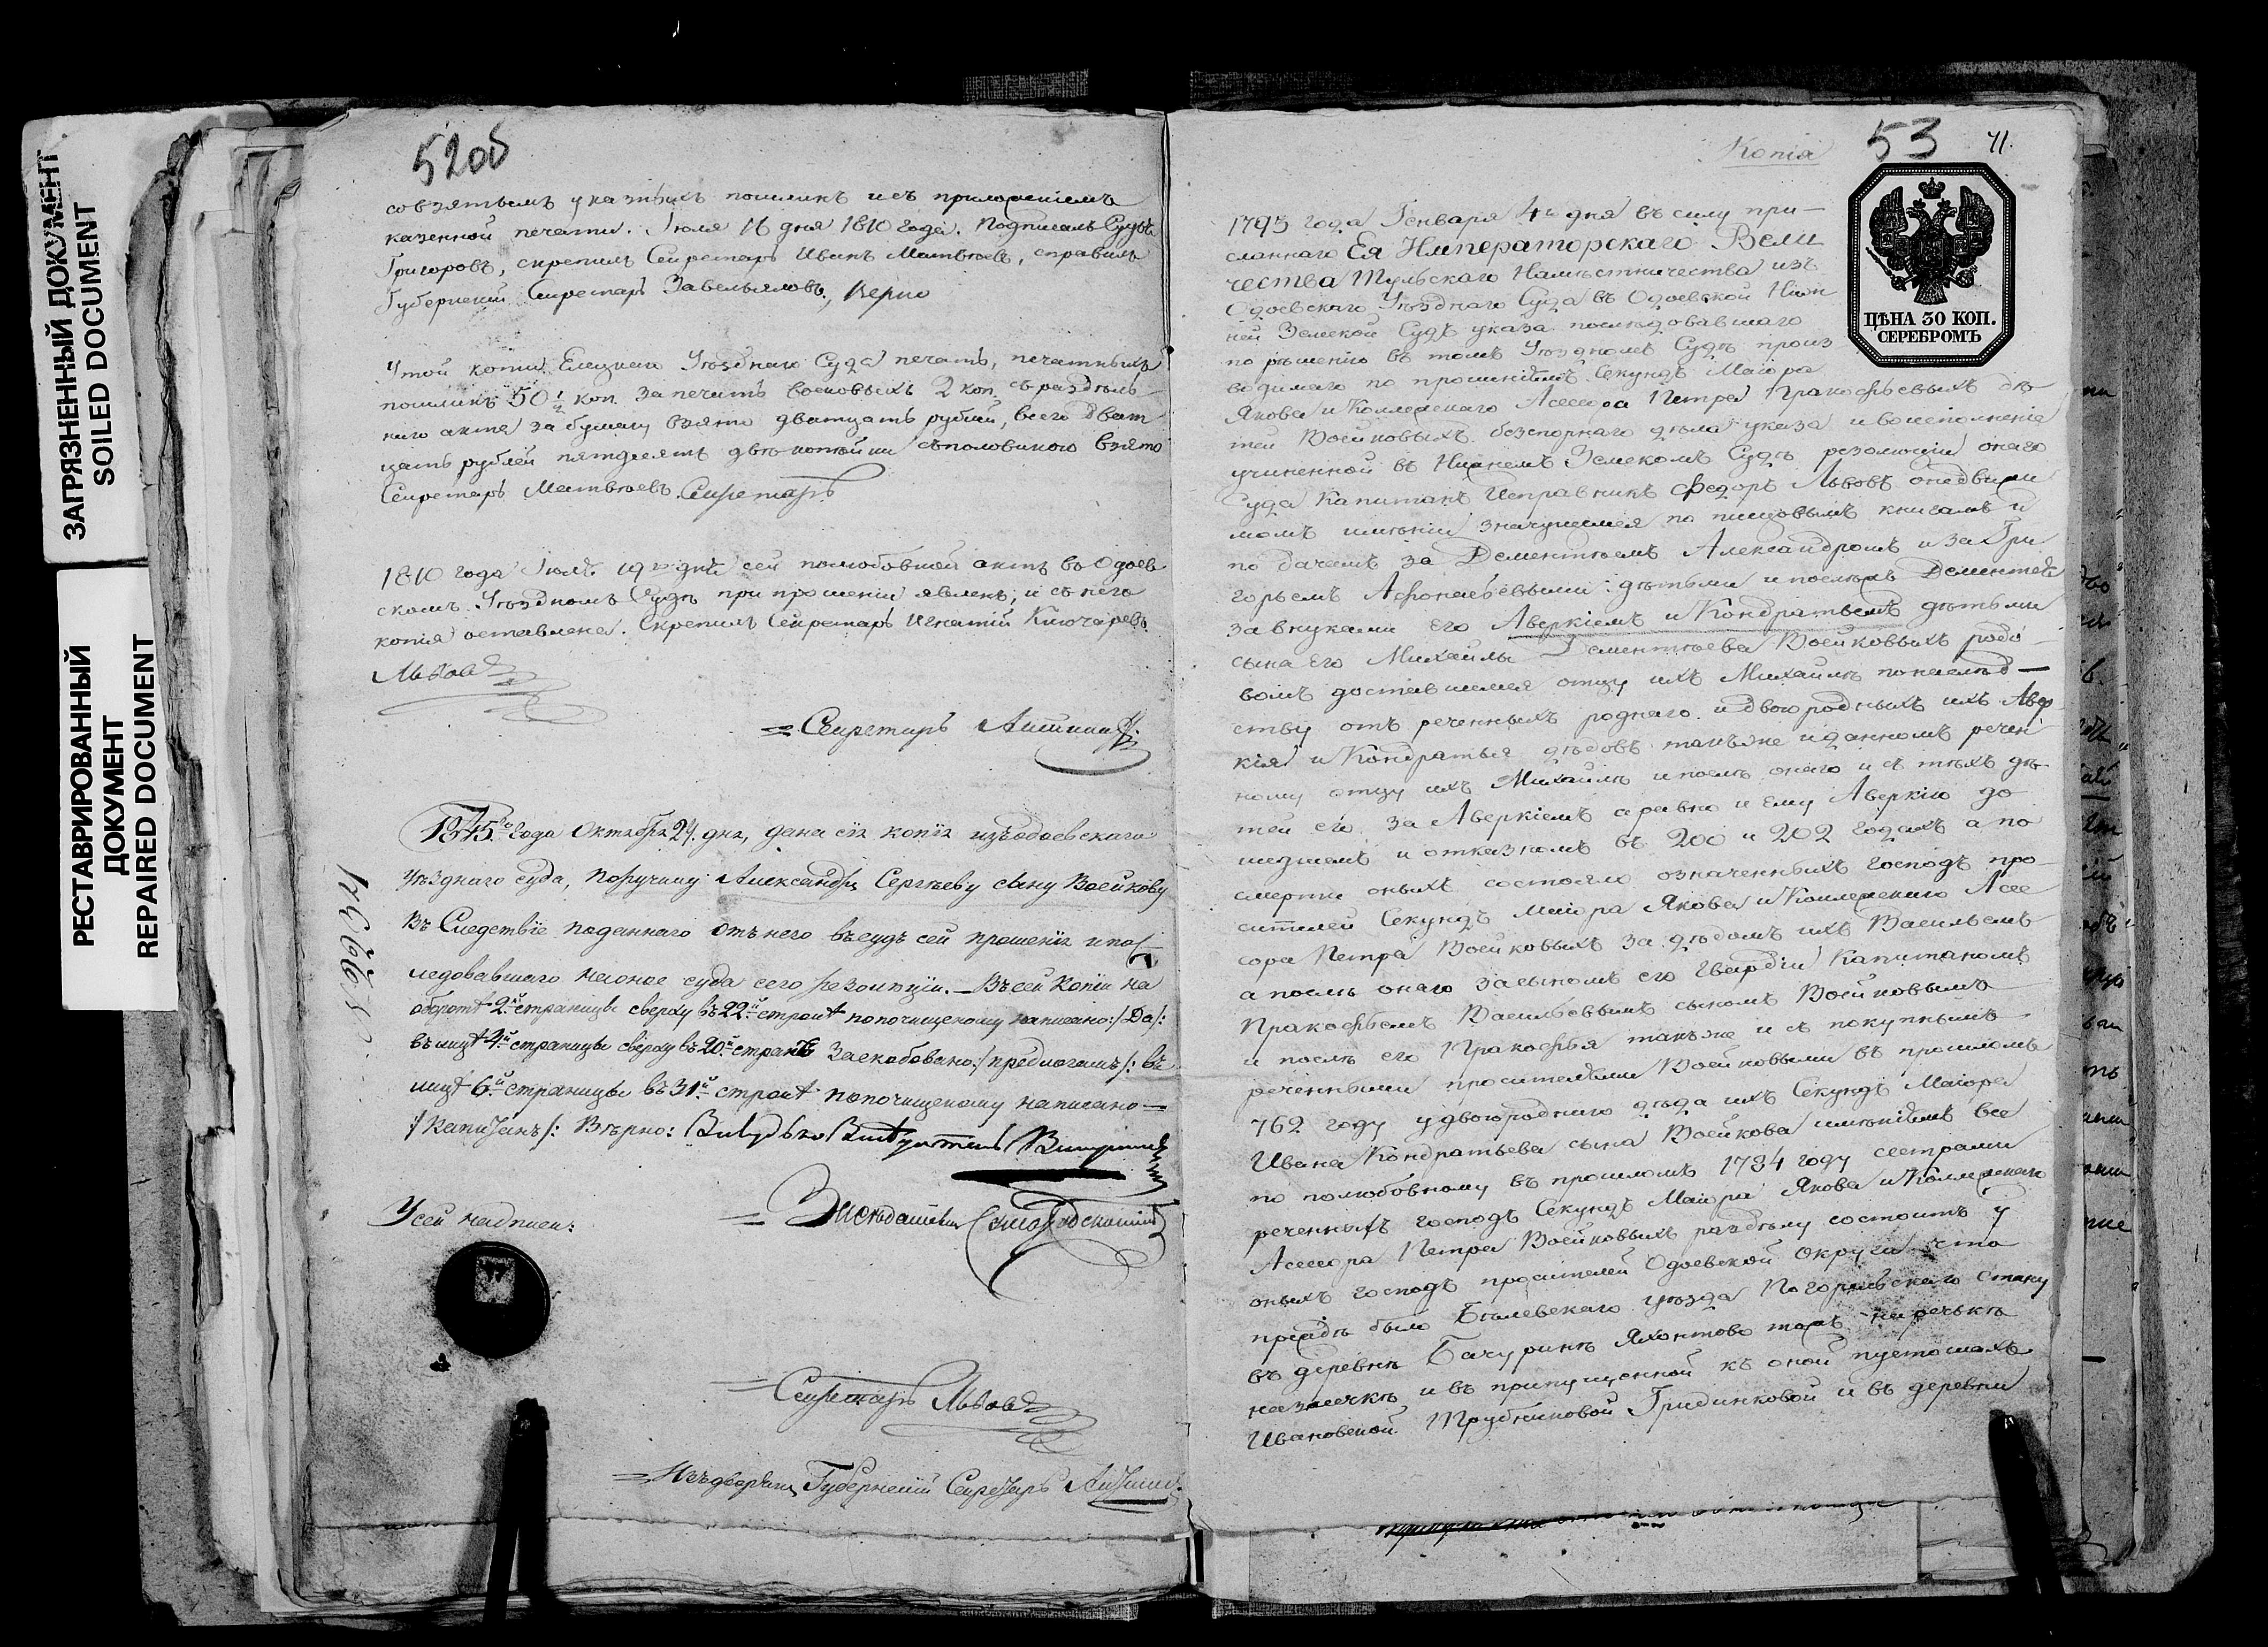 ЗАГРЯЗНЕННЫЙ ДОКУМЕНТ
SOILED DOCUMENT
РЕСТАВРИРОВАННЫЙ
ДОКУМЕНТ
REPAIRED DOCUMENT
52об
совзятьемъ указныхъ пошлинъ исъ приложеніемъ
казенной печати. Іюля 16 дня 1810 года. Подписалъ Судья
Григоровъ, скрепилъ Секретарь Иванъ Матвѣевъ, справилъ
Губернскій Секретарь, Верно
Утой копіи Елецкаго Уѣзднаго Суда печать, печатныхъ
пошлинъ 50 1/2 коп. запечать восковыхъ 2 коп, съ раздѣль
наго акта за бумагу взято дватцать рублей, всего дват
цать рублей пятдесятъ двѣ копѣйки съполовиною взято
Секретарь Матвѣевъ. Секретарь
1810 года Іюля 19го дня сей полюбовной актъ въ Одоев
скомъ Уѣздномъ Судѣ при прошеніи явленъ, и съ него
копія оставлена. Скрепилъ Секретарь Игнатій Ключаревъ.
Львовъ
= Секретарь
1845го года Октября 24. дня, дана сія копія изъодоевскаго
Уѣзднаго суда, Поручику Александру Сергѣеву сыну Воейкову
Въ Следствіе поданнаго отъ него въсудъ сей прошенія ипос
ледовавшаго наоное суда сего резолюціи. — Въсей копіи на
оборотѣ 2й страницы сверху въ 22й строкѣ попочищеному написано:/Да/:
въ лицѣ 4й страницы сверху въ 20й строкѣ Заскобовано:/предлогомъ/: въ
лицѣ 6й страницы въ 31й строкѣ попочищеному написано —
/Капитанъ/: Вѣрно:
Усей надписи:
= Засѣдатель
= Секретарь Львовъ
= Изъдворянъ Губернскій Секретарь
Копія
53
71.
ЦѢНА 30 КОП.
СЕРЕБРОМЪ
1795 года Генваря 4го дня въ силу при —
сланнаго Ея Императорскаго Вели
чества Тульскаго Намѣстничества изъ
Одоевскаго Уѣзднаго Суда въ Одоевской Ниж
ней Земской Судъ указа последовавшаго
по рѣшенію въ томъ Уѣздномъ Судѣ произ
водимаго по прошеніямъ Секундъ Маіора
Якова и Коллежскаго Асесора Петра Пракофьевыхъ дѣ
тей Воейковыхъ безспорнаго дѣла указа ивоисполненіе
учиненной въ Нижнемъ Земскомъ Судѣ резолюціи онаго
Суда Капитанъ Исправникъ Федоръ Львовъ онедвижи
момъ имѣніи значущемся по писцовымъ книгамъ и
по дачамъ за Дементьемъ Александромъ и за Гри
горьемъ Афонасьевыми дѣтьми и послѣхъ Дементья
завнуками его Аверкіемъ и Кондратьемъ дѣтьми
сына его Михайлы Дементьева Воейковыхъ родо
вомъ доставшемся отцу ихъ Михайлѣ понаслѣд —
ству отъ реченныхъ роднаго и двоюродныхъ ихъ Авер
кія и Кондратья дѣдовъ такъже иданномъ речен
ному отцу ихъ Михайлѣ и послѣ онаго и съ тѣхъ дѣ
тей его за Аверкіемъ аравно и ему Аверкію до
шедшемъ и отказномъ въ 200 и 202 годахъ а по
смерти оныхъ состояло означенныхъ господъ про
сителей Секундъ Маіора Якова и Коллежскаго Асе
сора Петра Воейковыхъ за дѣдомъ ихъ Васильемъ
а послѣ онаго засыномъ его Гвардіи Капитаномъ
Пракофьемъ Васильевымъ сыномъ Воейковымъ
и послѣ его Пракофья такъже и съ покупнымъ
реченными просителями Воейковыми въ прошломъ
762 году удвоюроднаго дѣда ихъ Секундъ Маіора
Ивана Кондратьева сына Воейкова имѣніемъ все
по полюбовному въ прошломъ 1784 году сестрами
реченныхъ господъ Секундъ Маіора Якова и Коллежскаго
Асесора Петра Воейковыхъ раздѣлу состоитъ у
оныхъ господъ просителей Одоевской округи что
преждѣ было Белевскаго уѣзда Погорельскаго стану
въ деревнѣ Бачуринѣ Яхонтово тожъ наречькѣ
назасечкѣ и въ припущенной къ оной пустошахъ
Ивановской Трубниковой Гридинковой и въ деревни